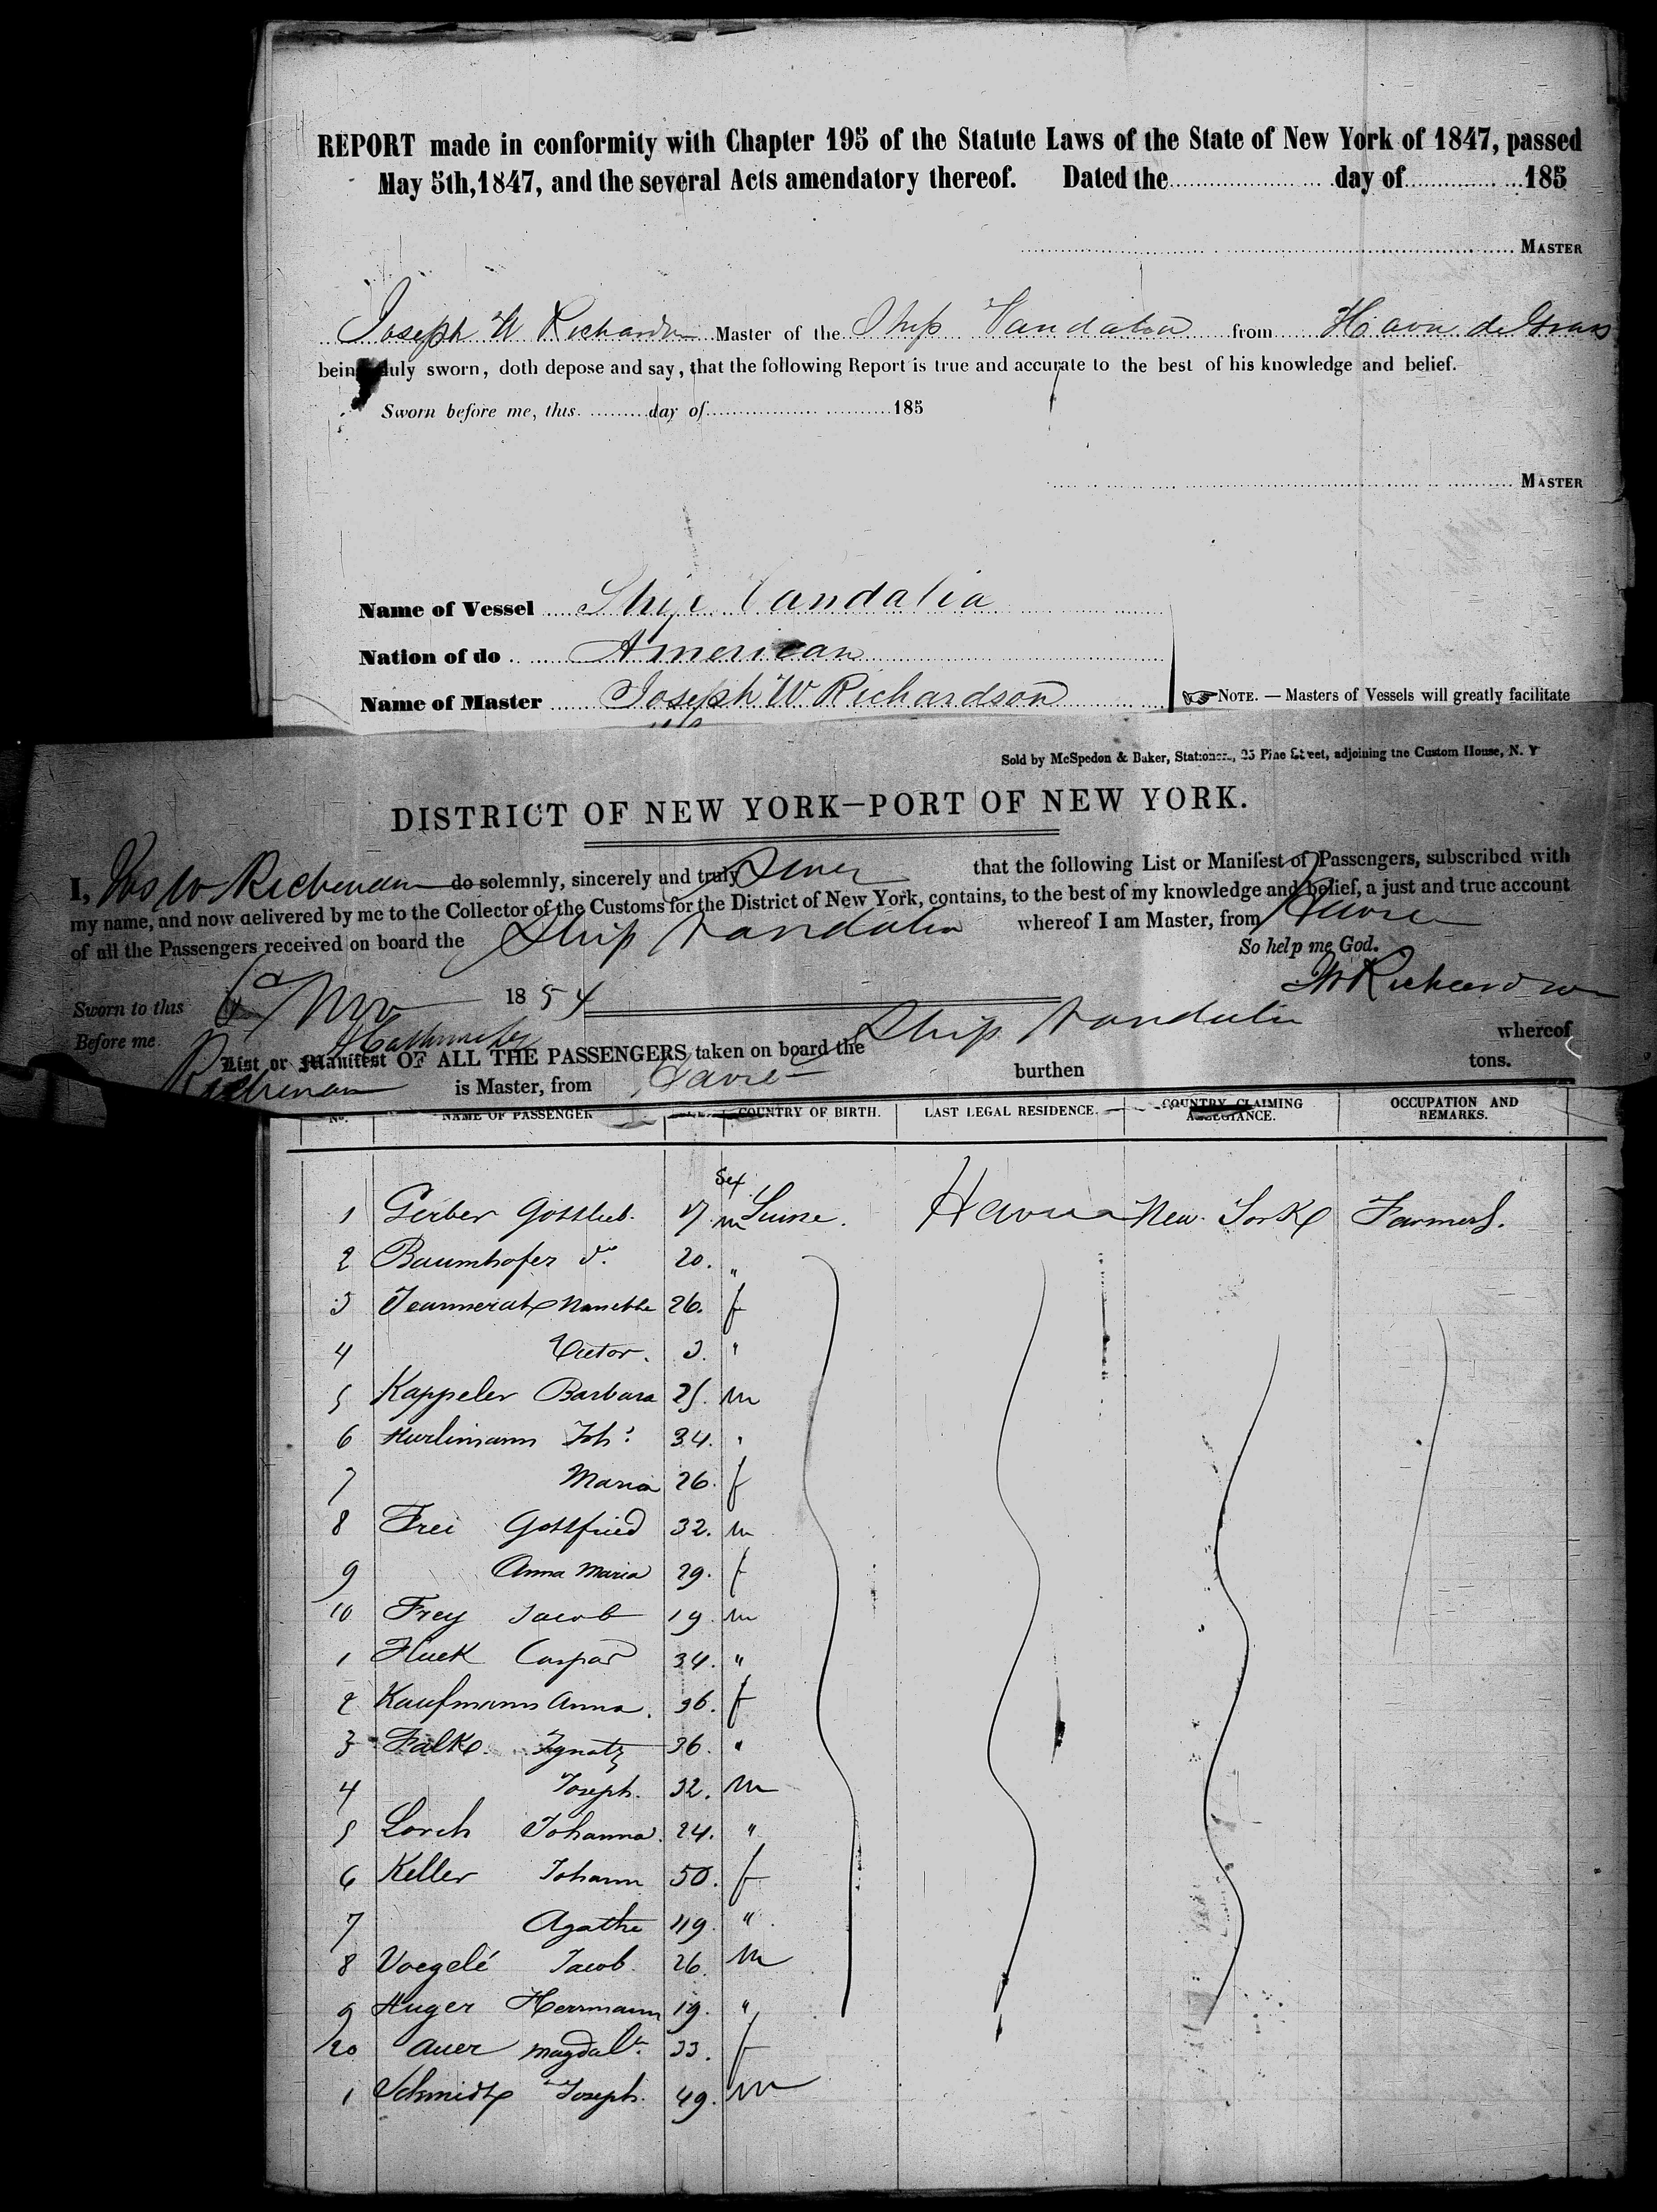 REPORT made in conformity with Chapter 195 of the Statute Laws of the State of New York of 1847, passed
May 5th, 1847, and the several Acts amendatory thereof. Dated the day of 185
MASTER
Joseph W Richardson Master of the Ship Vandalia from Havre de Grace
being duly sworn, doth depose and say, that the following Report is true and accurate to the best of his knowledge and belief.
Sworn before me, this day of 185
MASTER
Name of Vessel Ship Vandalia
Nation of do American
Name of Master Joseph W Richardson
NOTE. — Masters of Vessels will greatly facilitate
Sold by McSpedon & Baker, Stationers, 25 Pine Street, adjoining the Custom House, N. Y
DISTRICT OF NEW YORK—PORT OF NEW YORK.
I, Jos W Richardson do solemnly, sincerely and truly Swear that the following List or Manifest of Passengers, subscribed with
my name, and now delivered by me to the Collector of the Customs for the District of New York, contains, to the best of my knowledge and belief, a just and true account
of all the Passengers received on board the Ship Vandalia whereof I am Master, from Havre
So help me God.
JW Richardson
Sworn to this 6 Nov 1854
Before me
List or Manifest OF ALL THE PASSENGERS taken on board the Ship Vandalia whereof
Richardson is Master, from Havre burthen tons.
No. NAME OF PASSENGER COUNTRY OF BIRTH. LAST LEGAL RESIDENCE. COUNTRY CLAIMING ALLEGIANCE. OCCUPATION AND REMARKS.
Sex
1 Gerber Gottlieb. 17. m Suisse. Havre New York Farmers.
2 Baumhofer do. 20. "
3 Jeannerat Nanette 26. f
4 Victor. 3. "
5 Kappeler Barbara 25. m
6 Hurlimann Joh: 34. "
7 Maria 26. f
8 Frei Gottfried 32. m
9 Anna Maria 29. f
10 Frey Jacob 19. m
1 Fluck Caspar 34. "
2 Kaufmann Anna. 36. f
3 Falk Ignatz 36. "
4 Joseph. 32. m
5 Lorch Johanna. 24. "
6 Keller Johann 50. f
7 Agathe 49. "
8 Voegelé Jacob. 26. m
9 Huger Herrmann 19. "
20 Auer Magdal. 33. f
1 Schmidt Joseph. 49. m